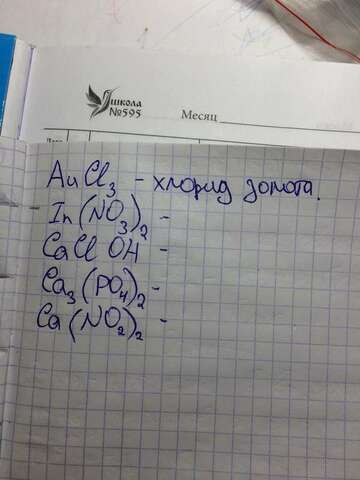 школа
№595
Месяц
AuCl₃ - хлорид золота.
In(NO₃)₂ -
CaCl OH -
Ca₃(PO₄)₂ -
Ca(NO₂)₂ -